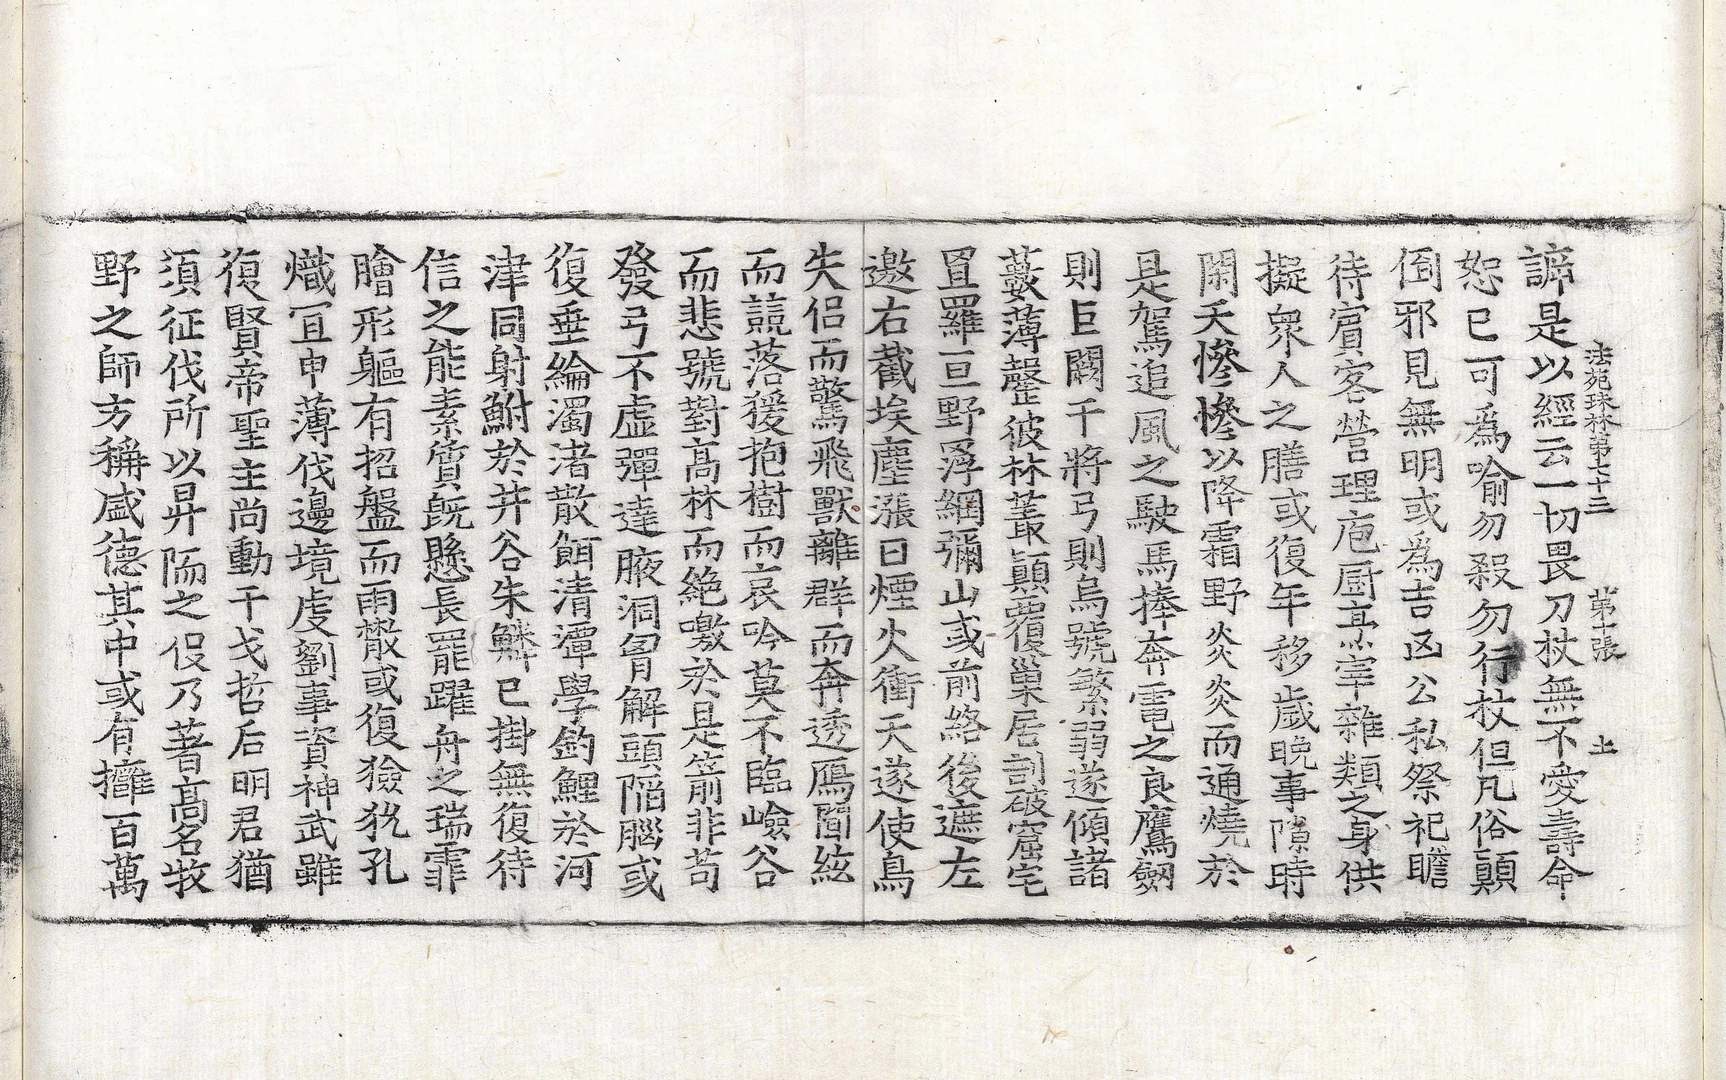 法苑珠林第七十三 第二張 土
諦是以經云一切畏刀杖無不愛壽命
恕已可爲喻勿殺勿行杖但凡俗顚
倒邪見無明或爲吉凶公私祭祀瞻
待賓客營理庖厨烹宰雜類之身供
擬衆人之膳或復年移歲晚事隙時
閑天慘慘以降霜野炎炎而通燒於
是駕追風之駛馬捧奔電之良鷹劒
則巨闕干將弓則烏號繁弱遂傾諸
藪薄罄彼林叢顚覆巢居剖破窟宅
罝羅亘野罦網彌山或前絡後遮左
邀右截埃塵漲日煙火衝天遂使鳥
失侶而驚飛獸離群而奔透鴈聞絃
而競落猨抱樹而哀吟莫不臨嶮谷
而悲號對高林而絶噭於是箭非苟
發弓不虛彈達腋洞胷解頭陷腦或
復垂綸濁渚散餌清潭學釣鯉於河
津同射鮒於井谷朱鱗已掛無復待
信之能素質旣懸長罷躍舟之瑞霏
膾形軀有招盤而雨散或復獫狁孔
熾冝申薄伐邊境虔劉事資神武雖
復賢帝聖主尚動干戈哲后明君猶
須征伐所以昇陑之役乃著高名牧
野之師方稱盛德其中或有擁百萬